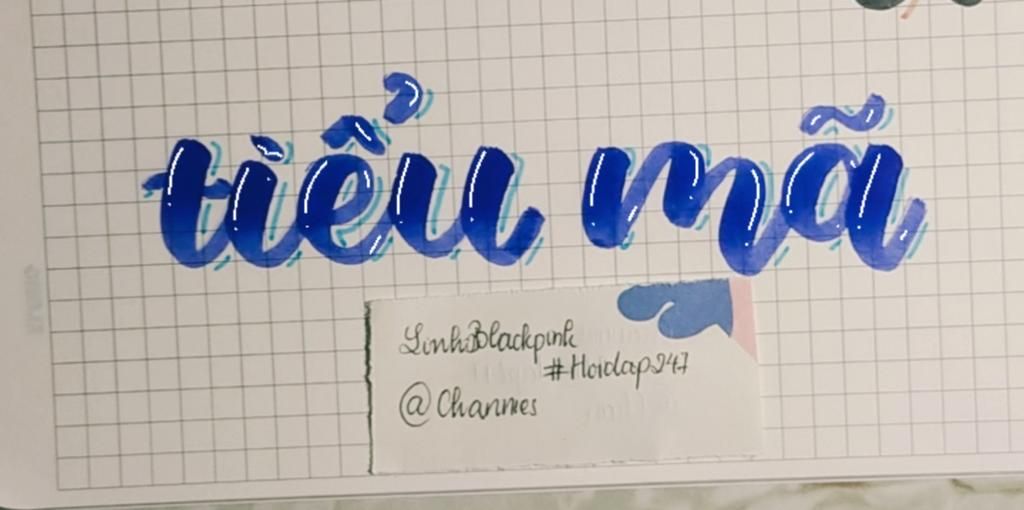 tiểu mã
LinhBlackpink
#Hoidap247
@Channies